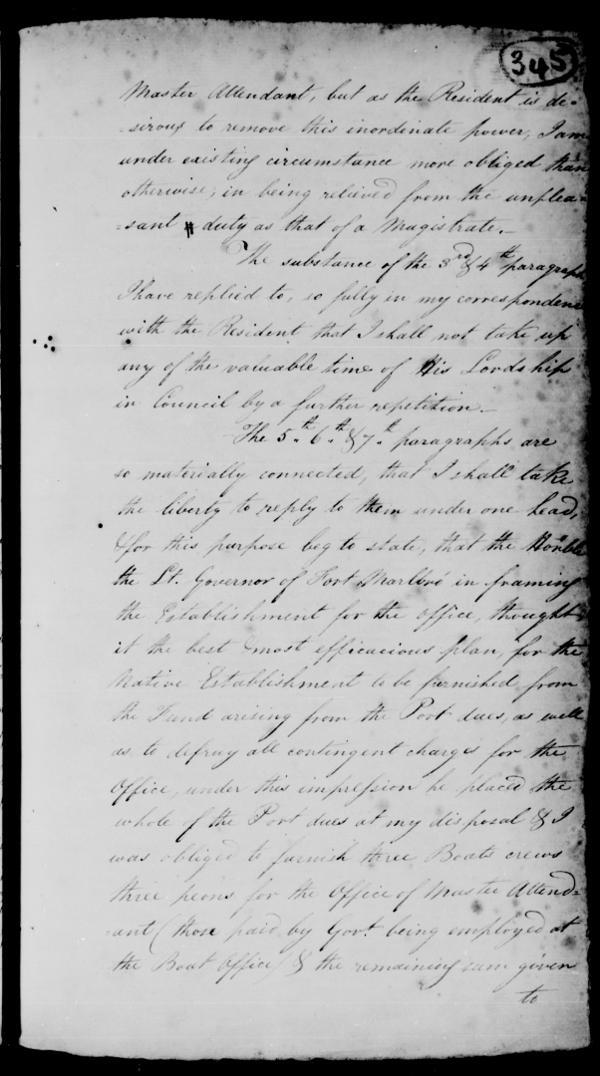 345
Master Attendant, but as the Resident is de-
-sirous to remove this inordinate power, I am
under existing circumstance more obliged than
otherwise, in being relieved from the unplea-
-sant duty as that of a Magistrate.-
The substance of the 3rd & 4th paragraph
I have replied to, so fully in my correspondence
with the Resident that I shall not take up
any of the valuable time of His Lordship
in Council by a further repetition.-
The 5th 6th & 7th paragraphs are
so materially connected, that I shall take
the liberty to reply to them under one head,
& for this purpose beg to state, that the Honble
the Lt. Governor of Fort Marlbro' in framing
the Establishment for the office, thought
it the best & most efficacious plan, for the
Native Establishment to be furnished from
the Fund arising from the Port dues, as well
as to defray all contingent charges for the
Office, under this impression he placed the
whole of the Port dues at my disposal & I
was obliged to furnish three Boats crews
three peons for the Office of Master Attend-
-ant (those paid by Govt. being employed at
the Boat Office) & the remaining sum given
to